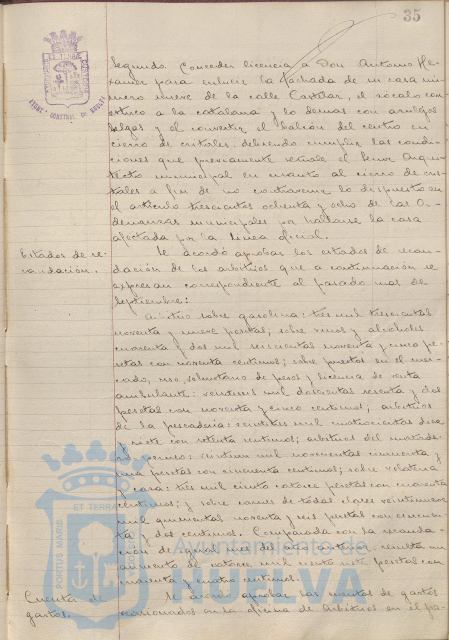 35
Segundo. Conceder licencia a Don Antonio
para enlucir la fachada de su casa nú-
mero nueve de la calle Castelar, el zócalo con
a la catalana y lo demás con azulejos
belgas y el convertir el balcón del centro en
cierro de cristales, debiendo cumplir las condi-
ciones que previamente señale el Señor Arqui-
tecto municipal en cuanto al cierro de cris-
tales a fin de no contravenir lo dispuesto en
el artículo trescientos ochenta y ocho de las Or-
denanzas municipales por hallarse la casa
afectada por la línea oficial.
Estados de re-
caudación.
Se acordó aprobar los estados de recau-
dación de los arbitrios que a continuación se
expresan correspondiente al pasado mes de
Septiembre:
Arbitrio sobre gasolina: tres mil trescientas
noventa y nueve pesetas; sobre vinos y alcoholes
cuarenta y dos mil seiscientas noventa y cinco pe-
setas con noventa céntimos; sobre puestos en el mer-
cado, uso voluntario de pesos y licencia de venta
ambulante: veintiun mil doscientas sesenta y dos
pesetas con noventa y cinco céntimos; arbitrios
de la pescadería: veintitres mil cuatrocientas diez
y siete con setenta céntimos; arbitrios del matade-
ro: veintiun mil novecientas cincuenta y
una pesetas con cincuenta céntimos; sobre volatería
y caza: tres mil ciento catorce pesetas con cuarenta
céntimos; y sobre carnes de todas clases veintinueve
mil quinientas noventa y seis pesetas con cincuen-
ta y dos céntimos. Comparada con la recauda-
ción de igual mes del año anterior, resulta un
aumento de catorce mil ciento siete pesetas con
cuarenta y cuatro céntimos.
Cuentas de
gastos.
Se acordó aprobar las cuentas de gastos
ocasionados en la oficina de Arbitrios en el pa-
PORTUS MARIS ET TERRAE
Ayuntamiento de
HUELVA